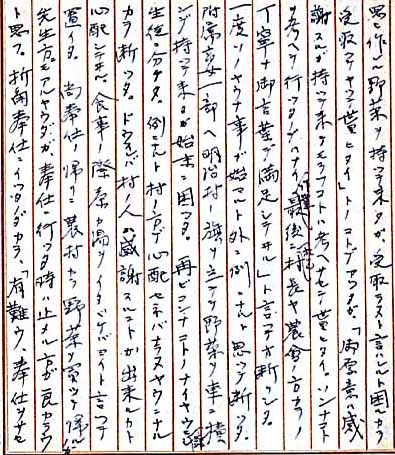 思ッ作ッタ野菜ヲ持ッテ来タガ、受取ラヌト言ハレルト困ルカラ
受取ッテヤッテ貰ヒタイ」トノコトデアッタガ「御厚意ハ感
謝スルガ持ッテ来ラレルコトハ考ヘサセテ貰ヒタイ。ソンナコト
ヲ考ヘテ行ッタノデハナイ」最後ニ村長ヤ農会ノ方々ノ
丁寧ナ御言葉デ満足シテヰル」ト言ッテオ断リシタ。
一度ソノヤウナ事ガ始マルト外ニ例ニナルト思ッテ断ッタ。
附属高女一部ヘ明治村ノ旗ヲ立テテ野菜ヲ車ニ積
ンデ持ッテ来タガ始末ニ困ッタ。再ビコンナコトノナイヤウニシ
生徒ニ分ケタ。例ニナルト村ノ方デ心配セネバナラヌヤウニナル
カラ断ッタ。ドウスレバ村ノ人ニ感謝スルコトガ出来ルカト
心配シテヰル。食事ノ際茶カ湯ヲイタダケバヨイト言ッテ
置イタ。尚奉仕ノ帰リニ農村カラ野菜ヲ買ッテ帰ル
先生方モアルヤウダガ、奉仕ニ行ッタ時ハ止メル方ガ良カラウ
ト思フ。折角奉仕ニイッタノダカラ、「有難ウ、奉仕ヲサセ